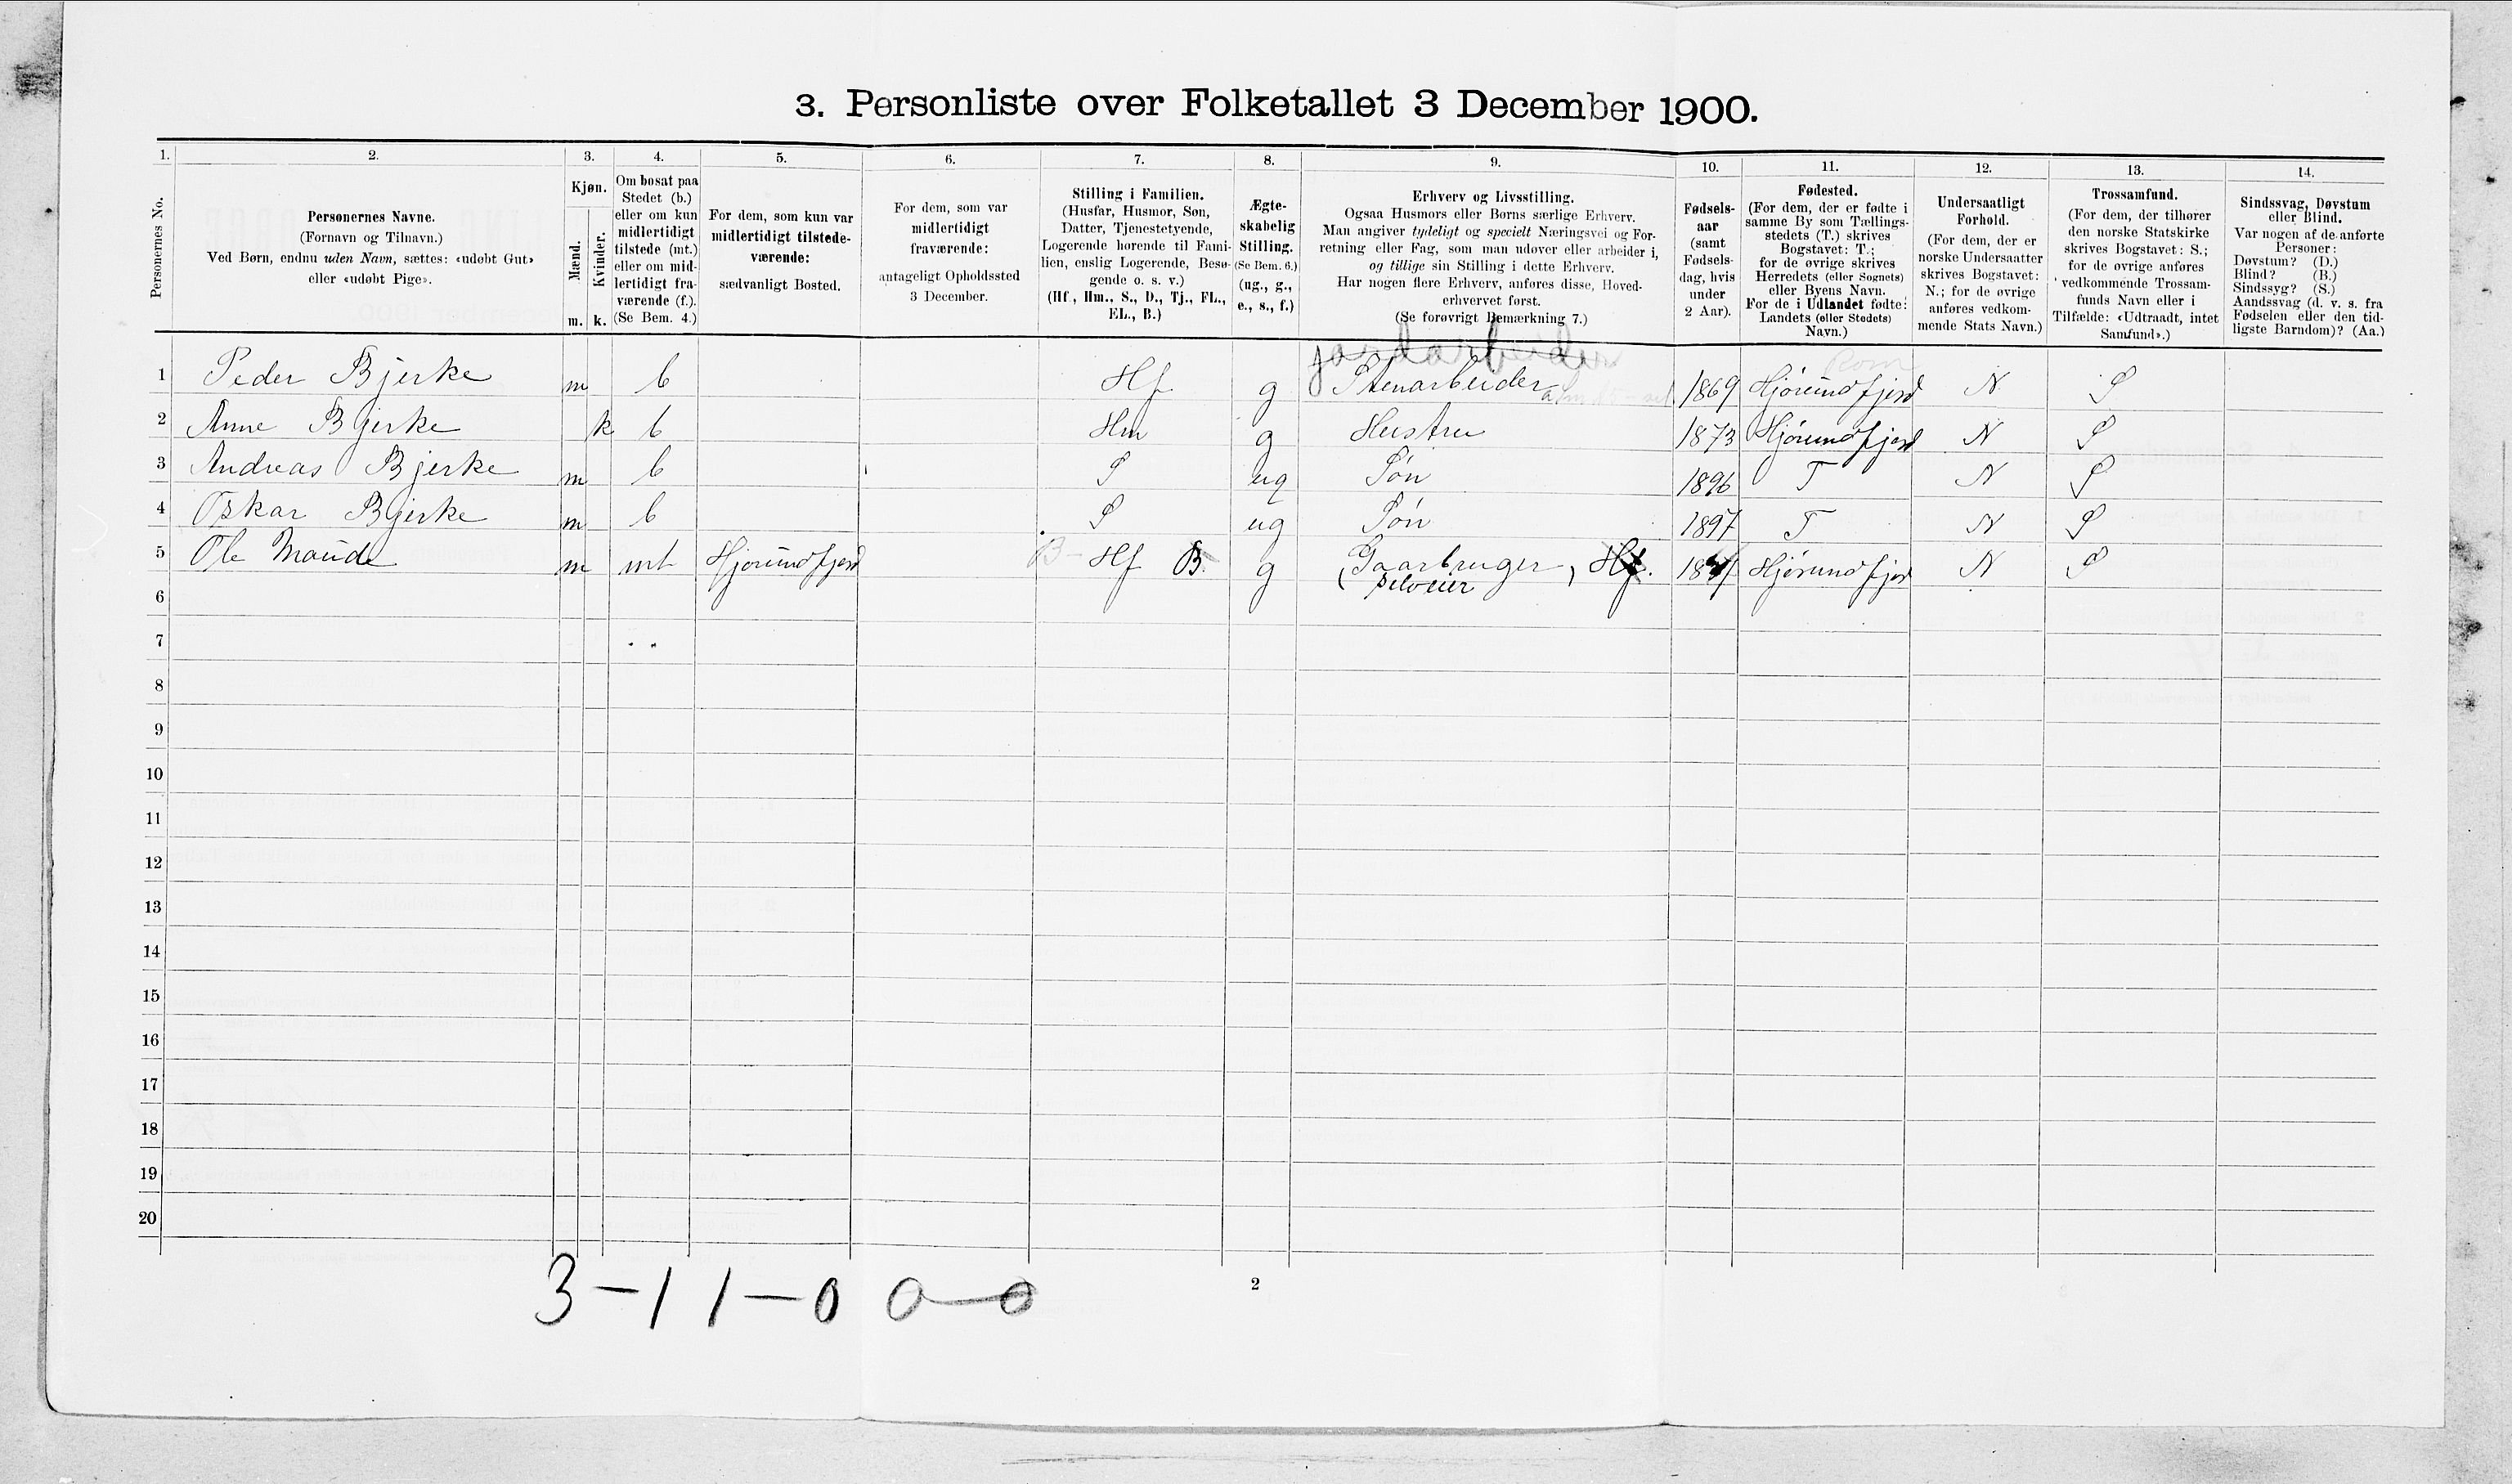 3. Personliste over Folketallet 3 December 1900.
1. 2. 3. 4. 5. 6. 7. 8. 9. 10. 11. 12. 13. 14.
Personernes No.
Personernes Navne.
(Fornavn og Tilnavn.)
Ved Børn, endnu uden Navn, sættes: «udøbt Gut»
eller «udøbt Pige».
Kjøn.
Mænd.
Kvinder.
m. k.
Om bosat paa
Stedet (b.)
eller om kun
midlertidigt
tilstede (mt.)
eller om mid-
lertidigt fra-
værende (f.).
(Se Bem. 4.)
For dem, som kun var
midlertidigt tilstede-
værende:
sædvanligt Bosted.
For dem, som var
midlertidigt
fraværende:
antageligt Opholdssted
3 December.
Stilling i Familien.
(Husfar, Husmor, Søn,
Datter, Tjenestetyende,
Logerende hørende til Fami-
lien, enslig Logerende, Besø-
gende o. s. v.)
(Hf., Hm., S., D., Tj., FL.,
EL., B.)
Ægte-
skabelig
Stilling.
(Se Bem. 6.)
(ug., g.,
e., s., f.)
Erhverv og Livsstilling.
Ogsaa Husmors eller Børns særlige Erhverv.
Man angiver tydeligt og specielt Næringsvei og For-
retning eller Fag, som man udøver eller arbeider i,
og tillige sin Stilling i dette Erhverv.
Har nogen flere Erhverv, anføres disse, Hoved-
erhvervet først.
(Se forøvrigt Bemærkning 7.)
Fødsels-
aar
(samt
Fødsels-
dag, hvis
under
2 Aar).
Fødested.
(For dem, der er fødte i
samme By som Tællings-
stedets (T.) skrives
Bogstavet: T.;
for de øvrige skrives
Herredets (eller Sognets)
eller Byens Navn.
For de i Udlandet fødte:
Landets (eller Stedets)
Navn.)
Undersaatligt
Forhold.
(For dem, der er
norske Undersaatter
skrives Bogstavet:
N.; for de øvrige
anføres vedkom-
mende Stats Navn.)
Trossamfund.
(For dem, der tilhører
den norske Statskirke
skrives Bogstavet: S.;
for de øvrige anføres
vedkommende Trossam-
funds Navn eller i
Tilfælde: «Udtraadt, intet
Samfund».)
Sindssvag, Døvstum
eller Blind.
Var nogen af de anførte
Personer:
Døvstum? (D.)
Blind? (B.)
Sindssyg? (S.)
Aandssvag (d. v. s. fra
Fødselen eller den tid-
ligste Barndom)? (Aa.)
jordarbeider
1 Peder Bjerke m b Hf g Stenarbeider 1869 Hjørundfjord N S
2 Anne Bjerke k b Hm g Hustru 1873 Hjørundfjord N S
3 Andreas Bjerke m b S ug Søn 1896 T N S
4 Oskar Bjerke m b S ug Søn 1897 T N S
5 Ole Maude m mt Hjørundfjord B- Hf B. g Gaarbruger, Hf. Hjørundfjord N S
selveier
6
7
8
9
10
11
12
13
14
15
16
17
18
19
20
3-1 1-0 0-0
2